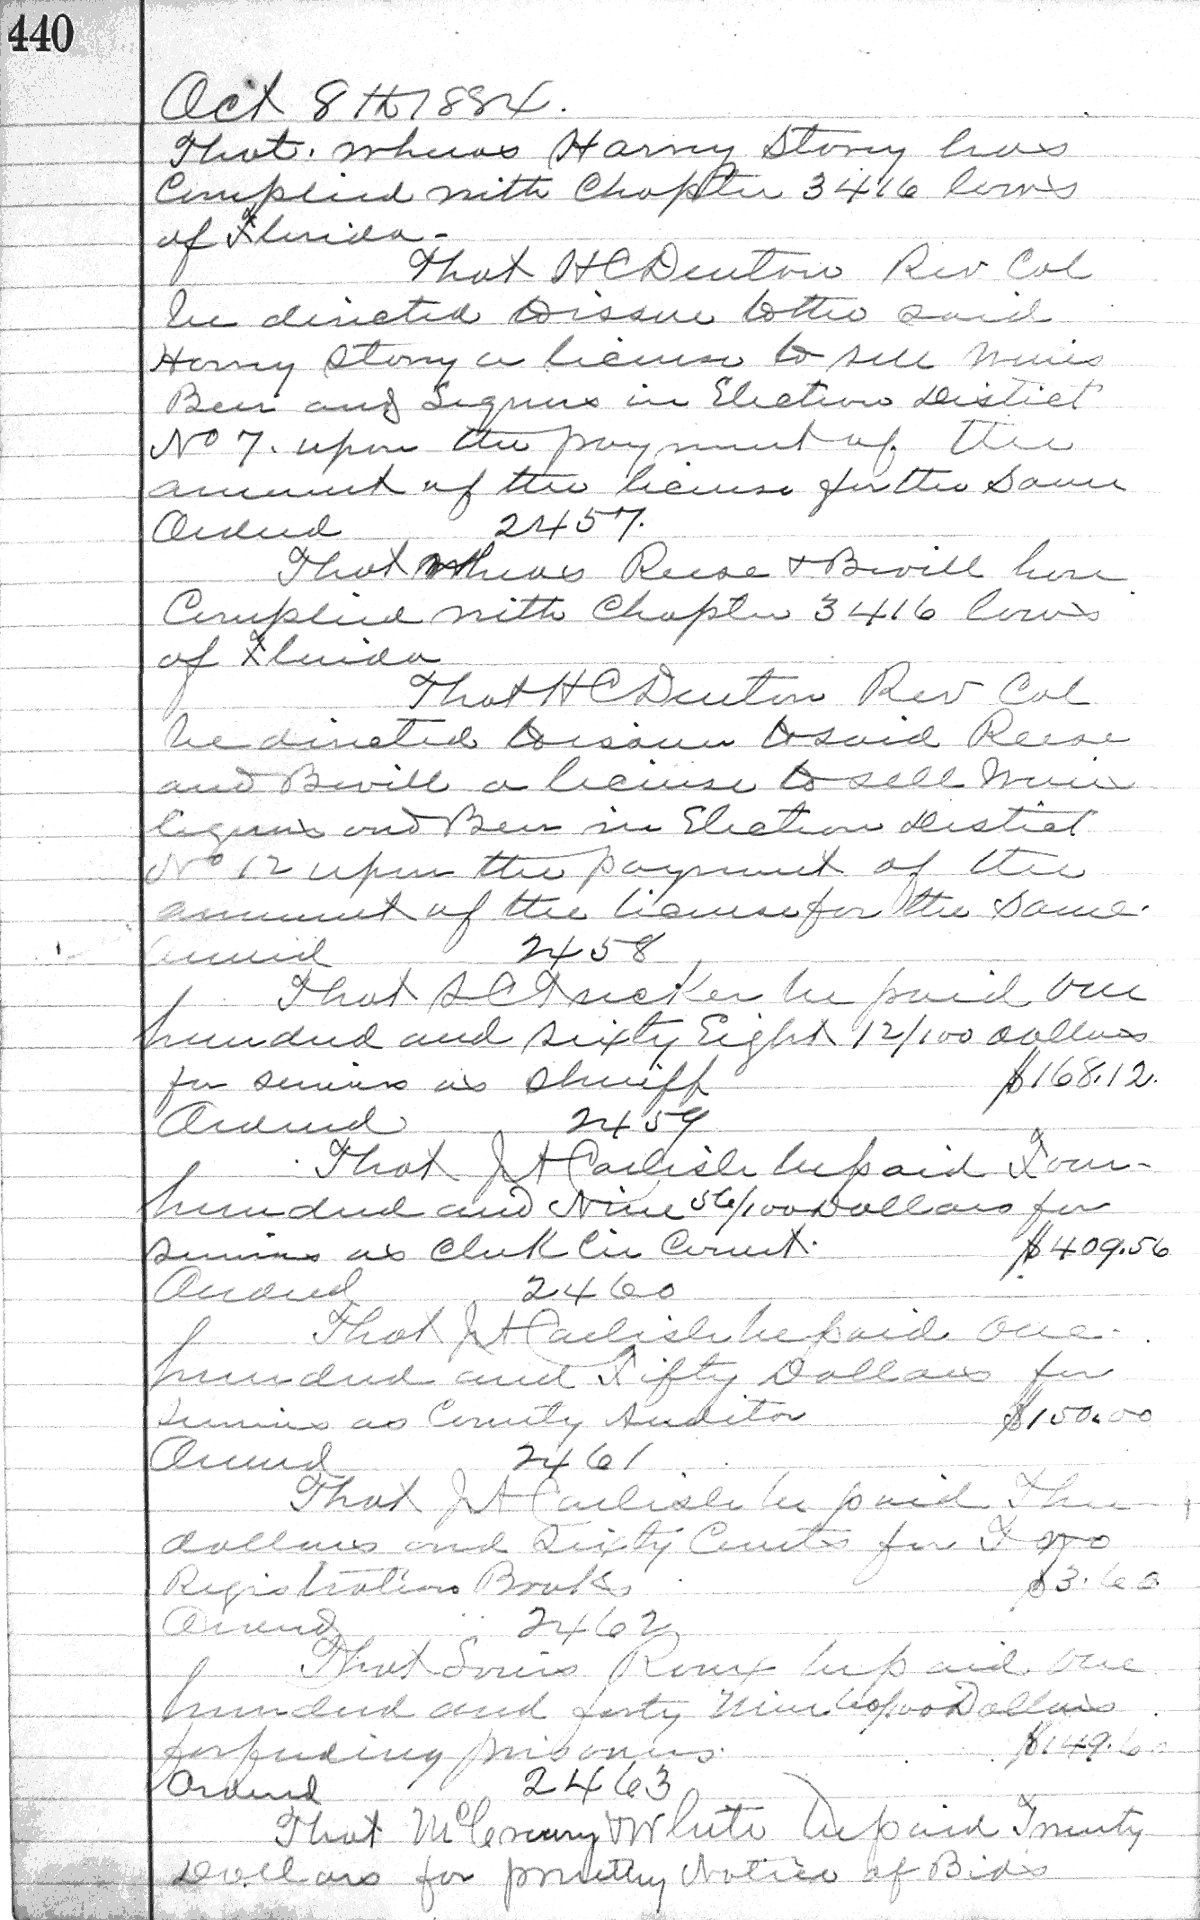 440
Oct 8th 1884.
That. Whereas Harvey Story has
Complied with Chapter 3416 laws
of Florida-
That H C Denton Rev Col
be directed to issue to the said
Harvey Story a license to sell Wines
Beer and Liquors in Election District
No 7. upon the payment of the
amount of the license for the same
Ordered 2457.
That Whereas Reese & Bevill have
Complied with Chapter 3416 laws
of Florida
That H C Denton Rev Col
be directed to issue to said Reese
and Bevill a license to sell Wine
liquors and Beer in Election District
No 12 upon the payment of the
amount of the license for the same.
Ordered 2458
That S C Tucker be paid one
hundred and sixty Eight 12/100 dollars
for services as Sheriff $168.12.
Ordered 2459
That J A Carlisle be paid Four-
hundred and Nine 56/100 Dollars for
services as Clerk Cir Court. $409.56
Ordered 2460
That J A Carlisle be paid one
hundred and Fifty Dollars for
services as County Auditor $150.00
Ordered 2461
That J A Carlisle be paid Three
dollars and Sixty Cents for Two
Registration Books $3.60
Ordered 2462
That Louis Roux be paid one
hundred and forty Nine 60/100 Dollars
for feeding prisoners. $149.60
Ordered 2463
That McCreary & White be paid Twenty
Dollars for printing Notice of Bids